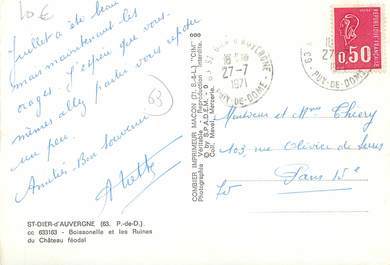 10 €
Juillet a été beau
mais maintenant les
orages. J'espère que vous-
mêmes allez partir vous reposer
un peu.
Amitiés - Bon Souvenir
63
ST-DIER-d'AUVERGNE (63. P.-de-D.)
cc 633163 - Boissonelle et les Ruines
du Château féodal
COMBIER IMPRIMEUR MACON (71. S.-&-L.) "CIM"
Photographie Véritable - Reproduction Interdite.
© by S.P.A.D.E.M.
27-7
1971
PUY-DE-DOME
63
27
PUY-DE-DOME
0,50
Monsieur et Mme Thiery
103, rue Olivier de Serres
75 Paris 15e